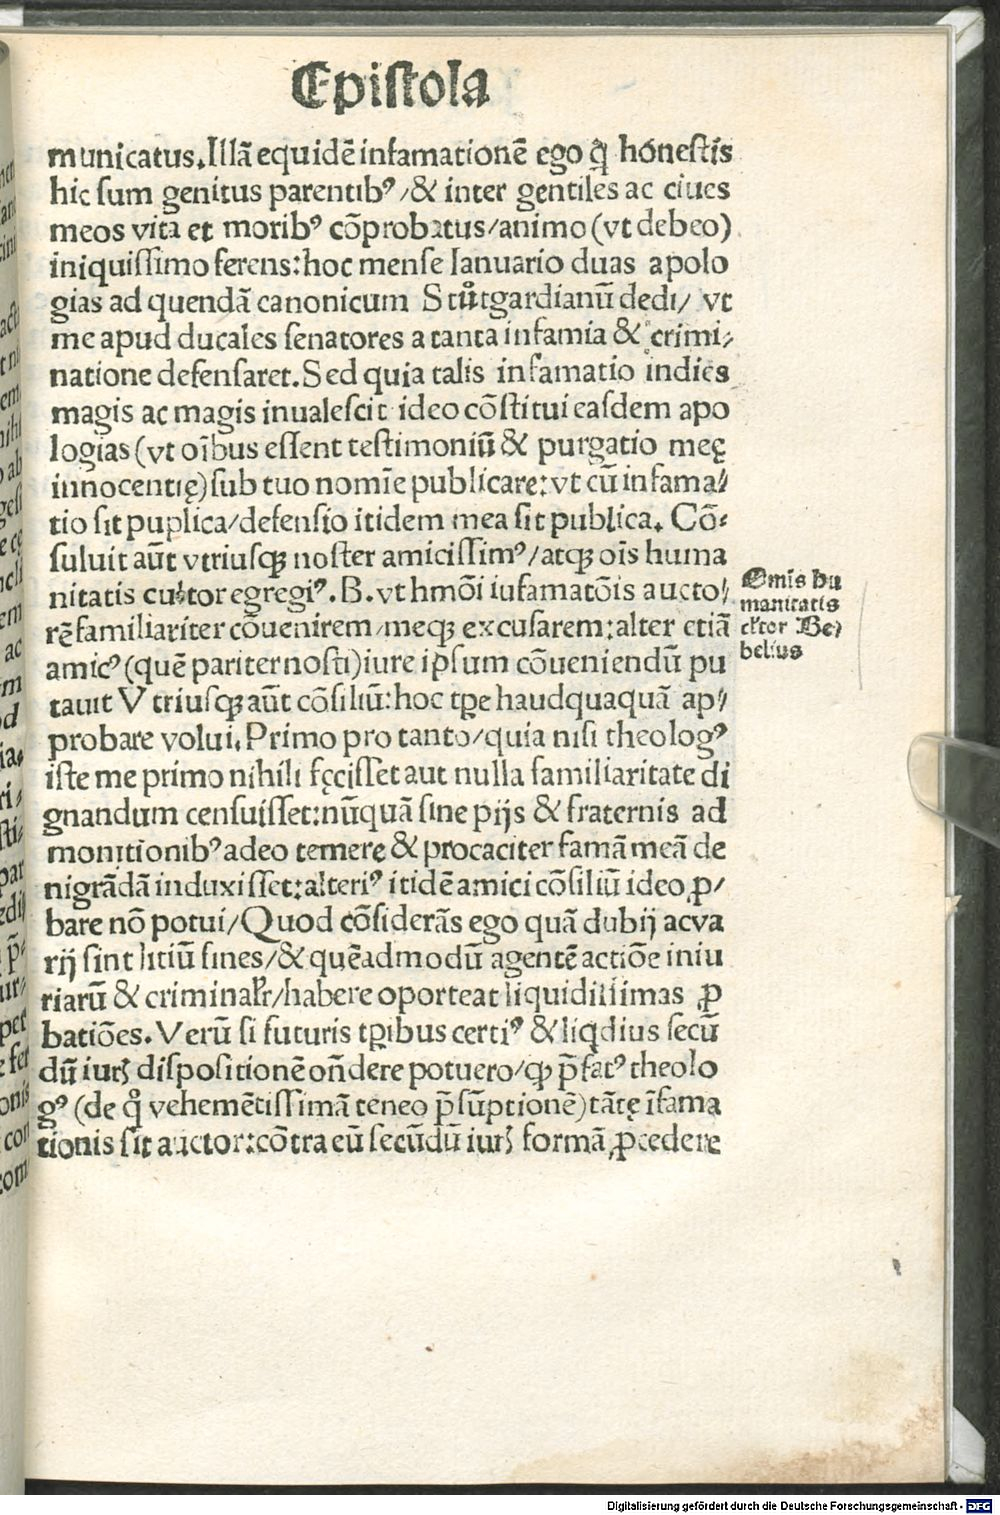 Epistola
municatus. Illā equidē infamationē ego q̄ honestis
hic sum genitus parentibꝰ/& inter gentiles ac ciues
meos vita et moribꝰ cōprobatus/animo (vt debeo)
iniquissimo ferens: hoc mense Ianuario duas apolo
gias ad quendā canonicum Stůtgardianū dedi/ vt
me apud ducales senatores a tanta infamia & crimi⸗
natione defensaret. Sed quia talis infamatio indies
magis ac magis inualescit ideo cōstitui easdem apo
logias (vt oībus essent testimoniū & purgatio meę
innocentię) sub tuo nomīe publicare: vt cū infama⸗
tio sit puplica/defensio itidem mea sit publica. Cō⸗
suluit aūt vtriusqꝫ noster amicissimꝰ/atqꝫ oīs huma
nitatis cultor egregiꝰ. B. vt hmōi iufamatōis aucto⸗
rē familiariter cōuenirem/meqꝫ excusarem: alter etiā
amicꝰ (quē pariter nosti) iure ipsum cōueniendū pu
tauit Vtriusqꝫ aūt cōsiliū: hoc tꝑe haudquaquā ap⸗
probare volui. Primo pro tanto/quia nisi theologꝰ
iste me primo nihili fęcisset aut nulla familiaritate di
gnandum censuisset: nūquā sine pijs & fraternis ad
monitionibꝰ adeo temere & procaciter famā meā de
nigrādā induxisset: alteriꝰ itidē amici cōsiliū ideo ꝓ/
bare nō potui/Quod cōsiderās ego quā dubij ac va
rij sint litiū fines/& quēadmodū agentē actiōe iniu
riarū & criminalr̄/habere oporteat liquidissimas ꝓ
batiōes. Verū si futuris tꝑibus certiꝰ & liq̇dius secū
dū iurꝭ dispositionē on̄dere potuero/ꝙ p̄fatꝰ theolo
gꝰ (de q̊ vehemētissimā teneo p̄sūptionē) tātę īfama
tionis sit auctor: cōtra eū secūdū iurꝭ formā ꝓcedere
Omīs hu
manitatis
cl'tor Be⸗
belius
Digitalisierung gefördert durch die Deutsche Forschungsgemeinschaft - DFG